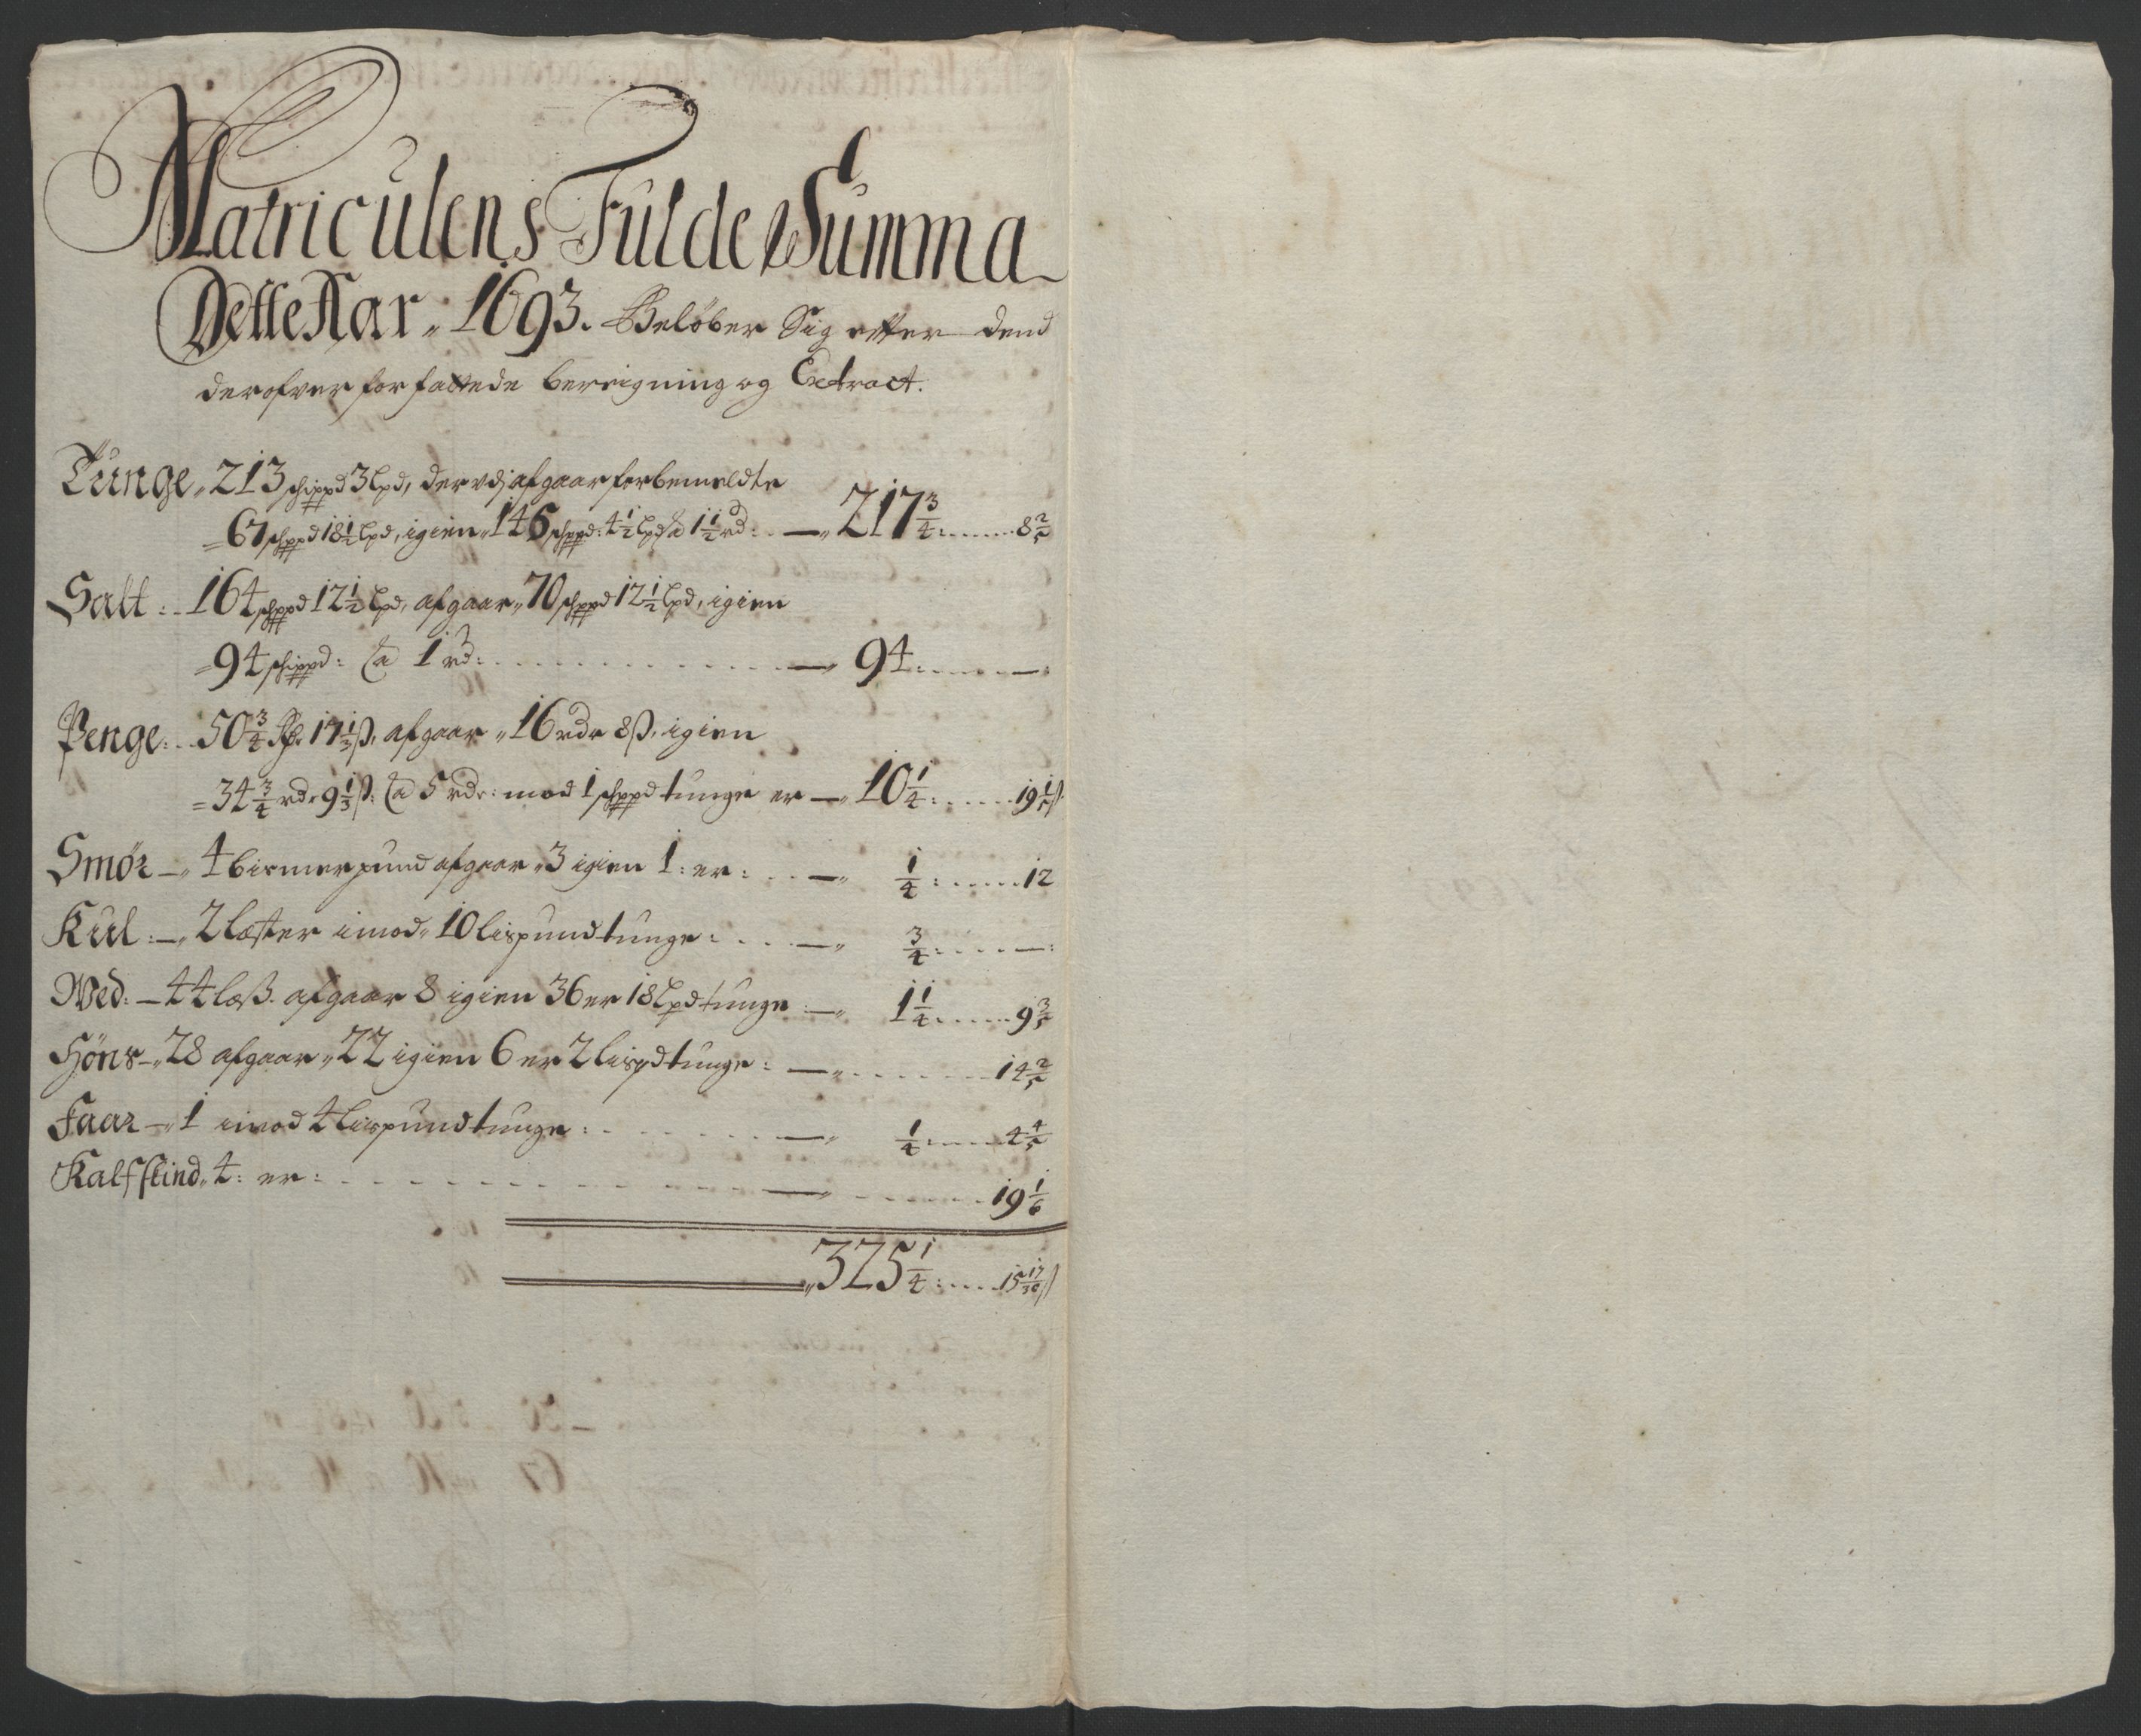 Matriculens Fulde Summa
Dette Aar 1693. Beløber Sig effter dend
derofver forfattede bereigning og Extract.
Tunge, 213 schippd 3 Lpd, der vdj afgaar forbemeldte
67 schppd 18 1/2 Lpd, igien 146 schppd: 4 1/2 Lpd a 1 1/2 rd: — 217 3/4 : . . . . 8 2/5
Salt : 164 schppd 12 1/2 Lpd, afgaar 70 schppd 12 1/2 Lpd, igien
94 schippd: a 1 rd: . . . . — 94 : . . . . — :
Penge : 50 3/4 Rdr 17 1/3 ß, afgaar 16 rdr 8 ß, igien
34 3/4 rdr 9 1/3 ß: a 5 rdr: mod 1 schppd tunge er — 10 1/4 : . . . . 19 1/5 ß
Smör — 4 bismerpund afgaar 3 igien 1 : er : . . — 1/4 : . . . . 12
Kul : — 2 læster imod 10 lispund tunge : . . . — 3/4 : . . . . — :
Wed : — 44 læß. afgaar 8 igien 36 er 18 Lpd tunge : — 1 1/4 : . . . . 9 3/5
Höns — 28 afgaar 22 igien 6 er 2 lispd tunge : — . . . . 14 2/5
Faar — 1 imod 4 lispund tunge : . . . . — 1/4 : . . . . 4 4/5
Kalfskind 4 : er : . . . . — . . . . 19 1/6
325 1/4 : . . . . 15 17/30 ß